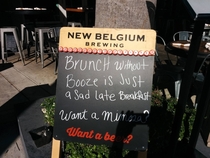 NEW BELGIUM
BREWING
BRUNCH without
Booze is Just
a Sad late Breakfast
Want a Mimosa?
Want a beer?